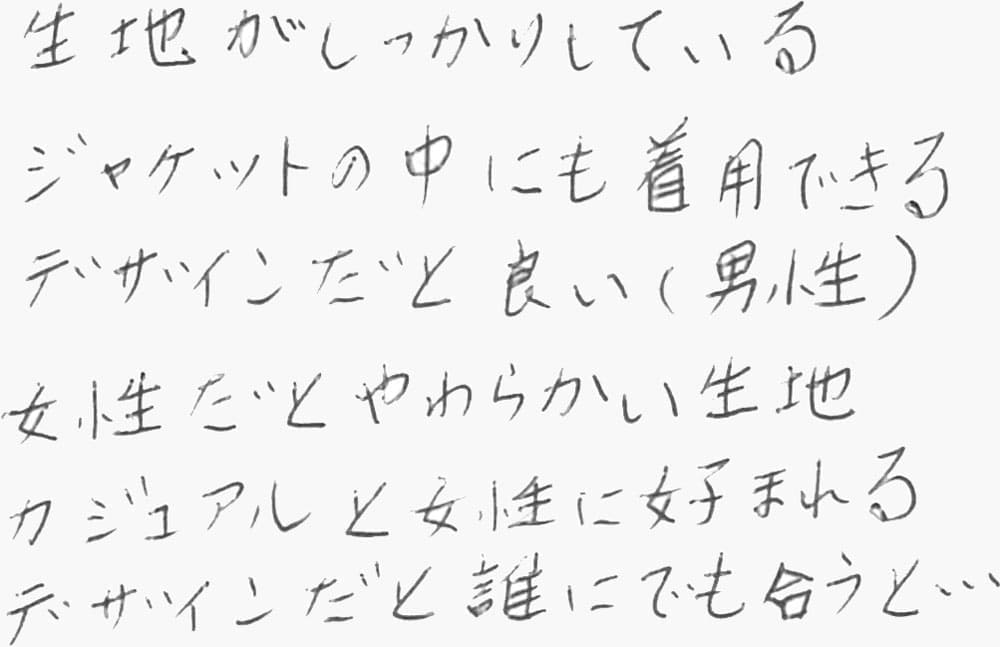 生地がしっかりしている
ジャケットの中にも着用できる
デザインだと良い(男性)
女性だとやわらかい生地
カジュアルと女性に好まれる
デザインだと誰にでも合うと…